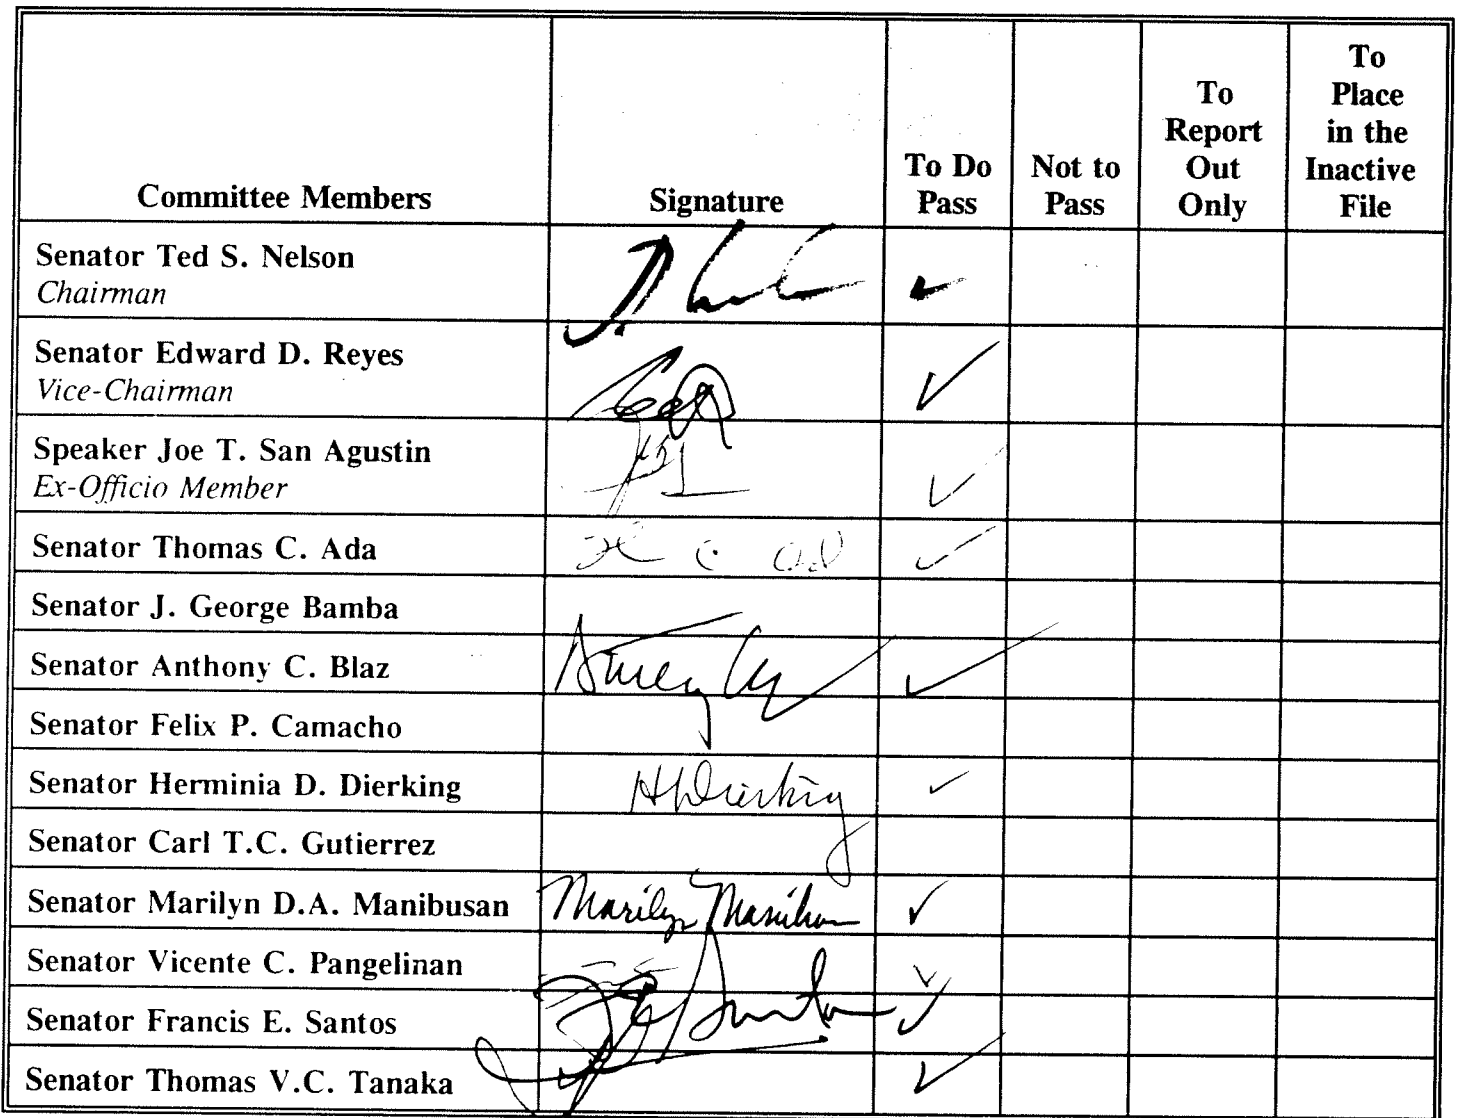 Committee Members
Signature
To Do
Pass
Not to
Pass
To
Report
Out
Only
To
Place
in the
Inactive
File
Senator Ted S. Nelson
Chairman
Senator Edward D. Reyes
Vice-Chairman
Speaker Joe T. San Agustin
Ex-Officio Member
Senator Thomas C. Ada
Senator J. George Bamba
Senator Anthony C. Blaz
Senator Felix P. Camacho
Senator Herminia D. Dierking
HDierking
Senator Carl T.C. Gutierrez
Senator Marilyn D.A. Manibusan
Marilyn Manibusan
Senator Vicente C. Pangelinan
Senator Francis E. Santos
Senator Thomas V.C. Tanaka